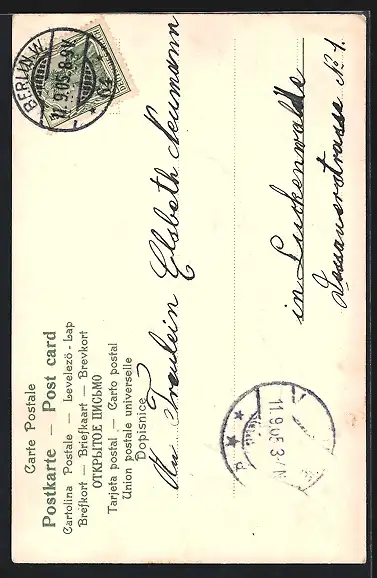 Carte Postale
Postkarte — Post card
Cartolina Postale — Levelező-Lap
Brefkort — Briefkaart — Brevkort
ОТКРЫТОЕ ПИСЬМО
Tarjeta postal — Carto postal
Union postale universelle
Dopisnice
BERLIN.W.
11.9.05.8-9V.
64
An Fräulein Elsbeth Neumann
in Luckenwalde
Dessauerstrasse No 1.
11.9.05.3-